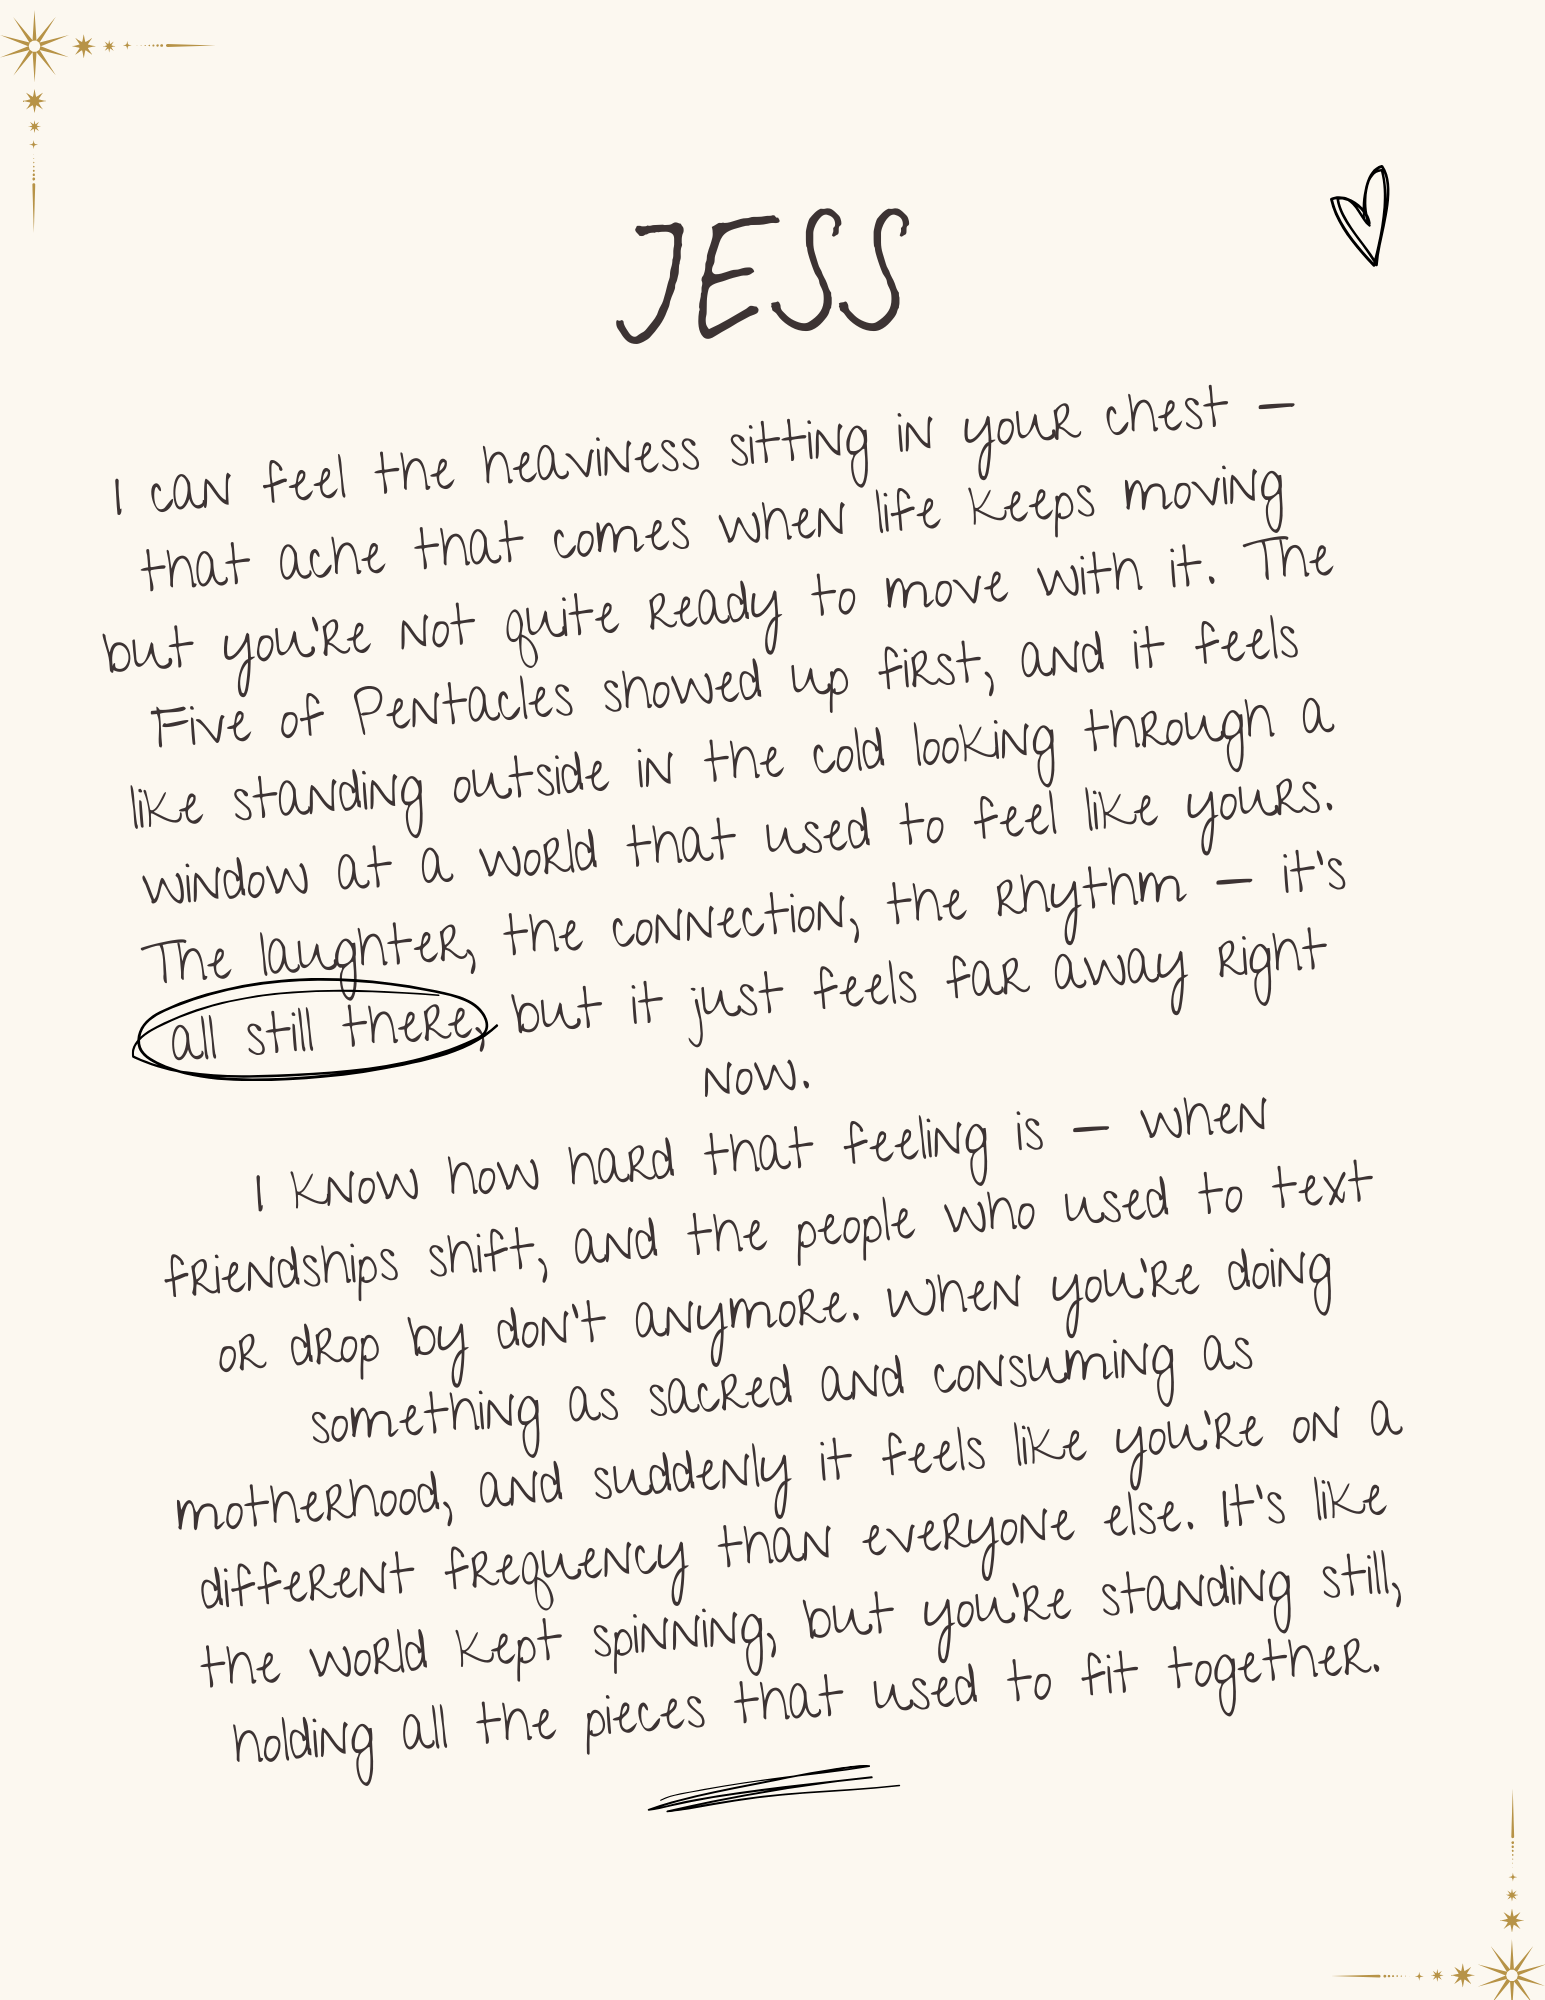 JESS
I can feel the heaviness sitting in your chest —
that ache that comes when life keeps moving
but you're not quite ready to move with it. The
Five of Pentacles showed up first, and it feels
like standing outside in the cold looking through a
window at a world that used to feel like yours.
The laughter, the connection, the rhythm — it's
all still there, but it just feels far away right
now.
I know how hard that feeling is — when
friendships shift, and the people who used to text
or drop by don't anymore. When you're doing
something as sacred and consuming as
motherhood, and suddenly it feels like you're on a
different frequency than everyone else. It's like
the world kept spinning, but you're standing still,
holding all the pieces that used to fit together.